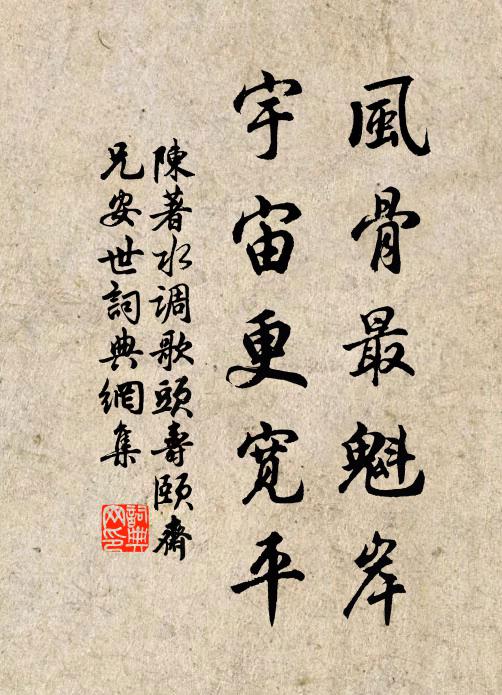 風骨最魁岸
宇宙更寬平
陳著水调歌頭壽頤齋
兄安世詞典網集
詞典网印